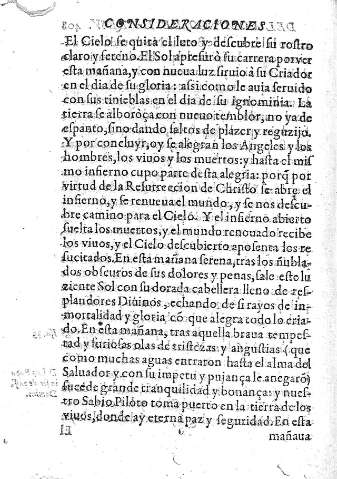 CONSIDERACIONES
El Cielo se quita el luto y descubre su rostro
claro y sereno. El Sol apresurò su carrera por ver
esta mañana, y con nueua luz siruio à su Criador
en el dia de su gloria: assi como le auia seruido
con sus tinieblas en el dia de su ignominia. La
tierra se alboroça con nueuo temblor, no ya de
espanto, sino dando saltos de plazer y regozijo.
Y por concluyr, oy se alegran los Angeles y los
hombres, los viuos y los muertos: y hasta el mis
mo infierno cupo parte desta alegria: porq̃ por
virtud de la Resurreccion de Christo se abre el
infierno, y se renueua el mundo, y se nos descu-
bre camino para el Cielo. Y el infierno abierto
suelta los muertos, y el mundo renouado recibe
los viuos, y el Cielo descubierto aposenta los re
sucitados. En esta mañana serena, tras los ñubla-
dos obscuros de sus dolores y penas, sale este lu
ziente Sol con su dorada cabellera lleno de res-
plandores Diuinos, echando de si rayos de in-
mortalidad y gloria cõ que alegra todo lo cria-
do. En esta mañana, tras aquella braua tempes-
tad y furiosas olas de tristezas y angustias (que
como muchas aguas entraron hasta el alma del
Saluador y con su impetu y pujança le anegarõ)
sucede grande tranquilidad y bonança: y nues-
tro Sabio Piloto toma puerto en la tierra de los
viuos, donde ay eterna paz y seguridad. En esta
mañana